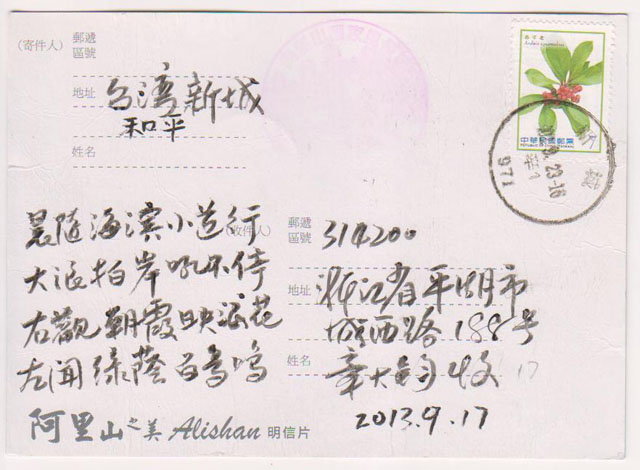 (寄件人)
郵遞
區號
地址
台湾新城
和平
姓名
中華民國郵票
REPUBLIC OF CHINA (TAIWAN)
新城
23.-16
971
晨随海滨小道行
大浪拍岸吼不停
右觀朝霞映浪花
左闻绿蔭百鸟鸣
(收件人)
郵遞
區號
314200
地址
浙江省平湖市
城西路188号
姓名
章大钧收
17
2013.9.17
阿里山之美 Alishan 明信片